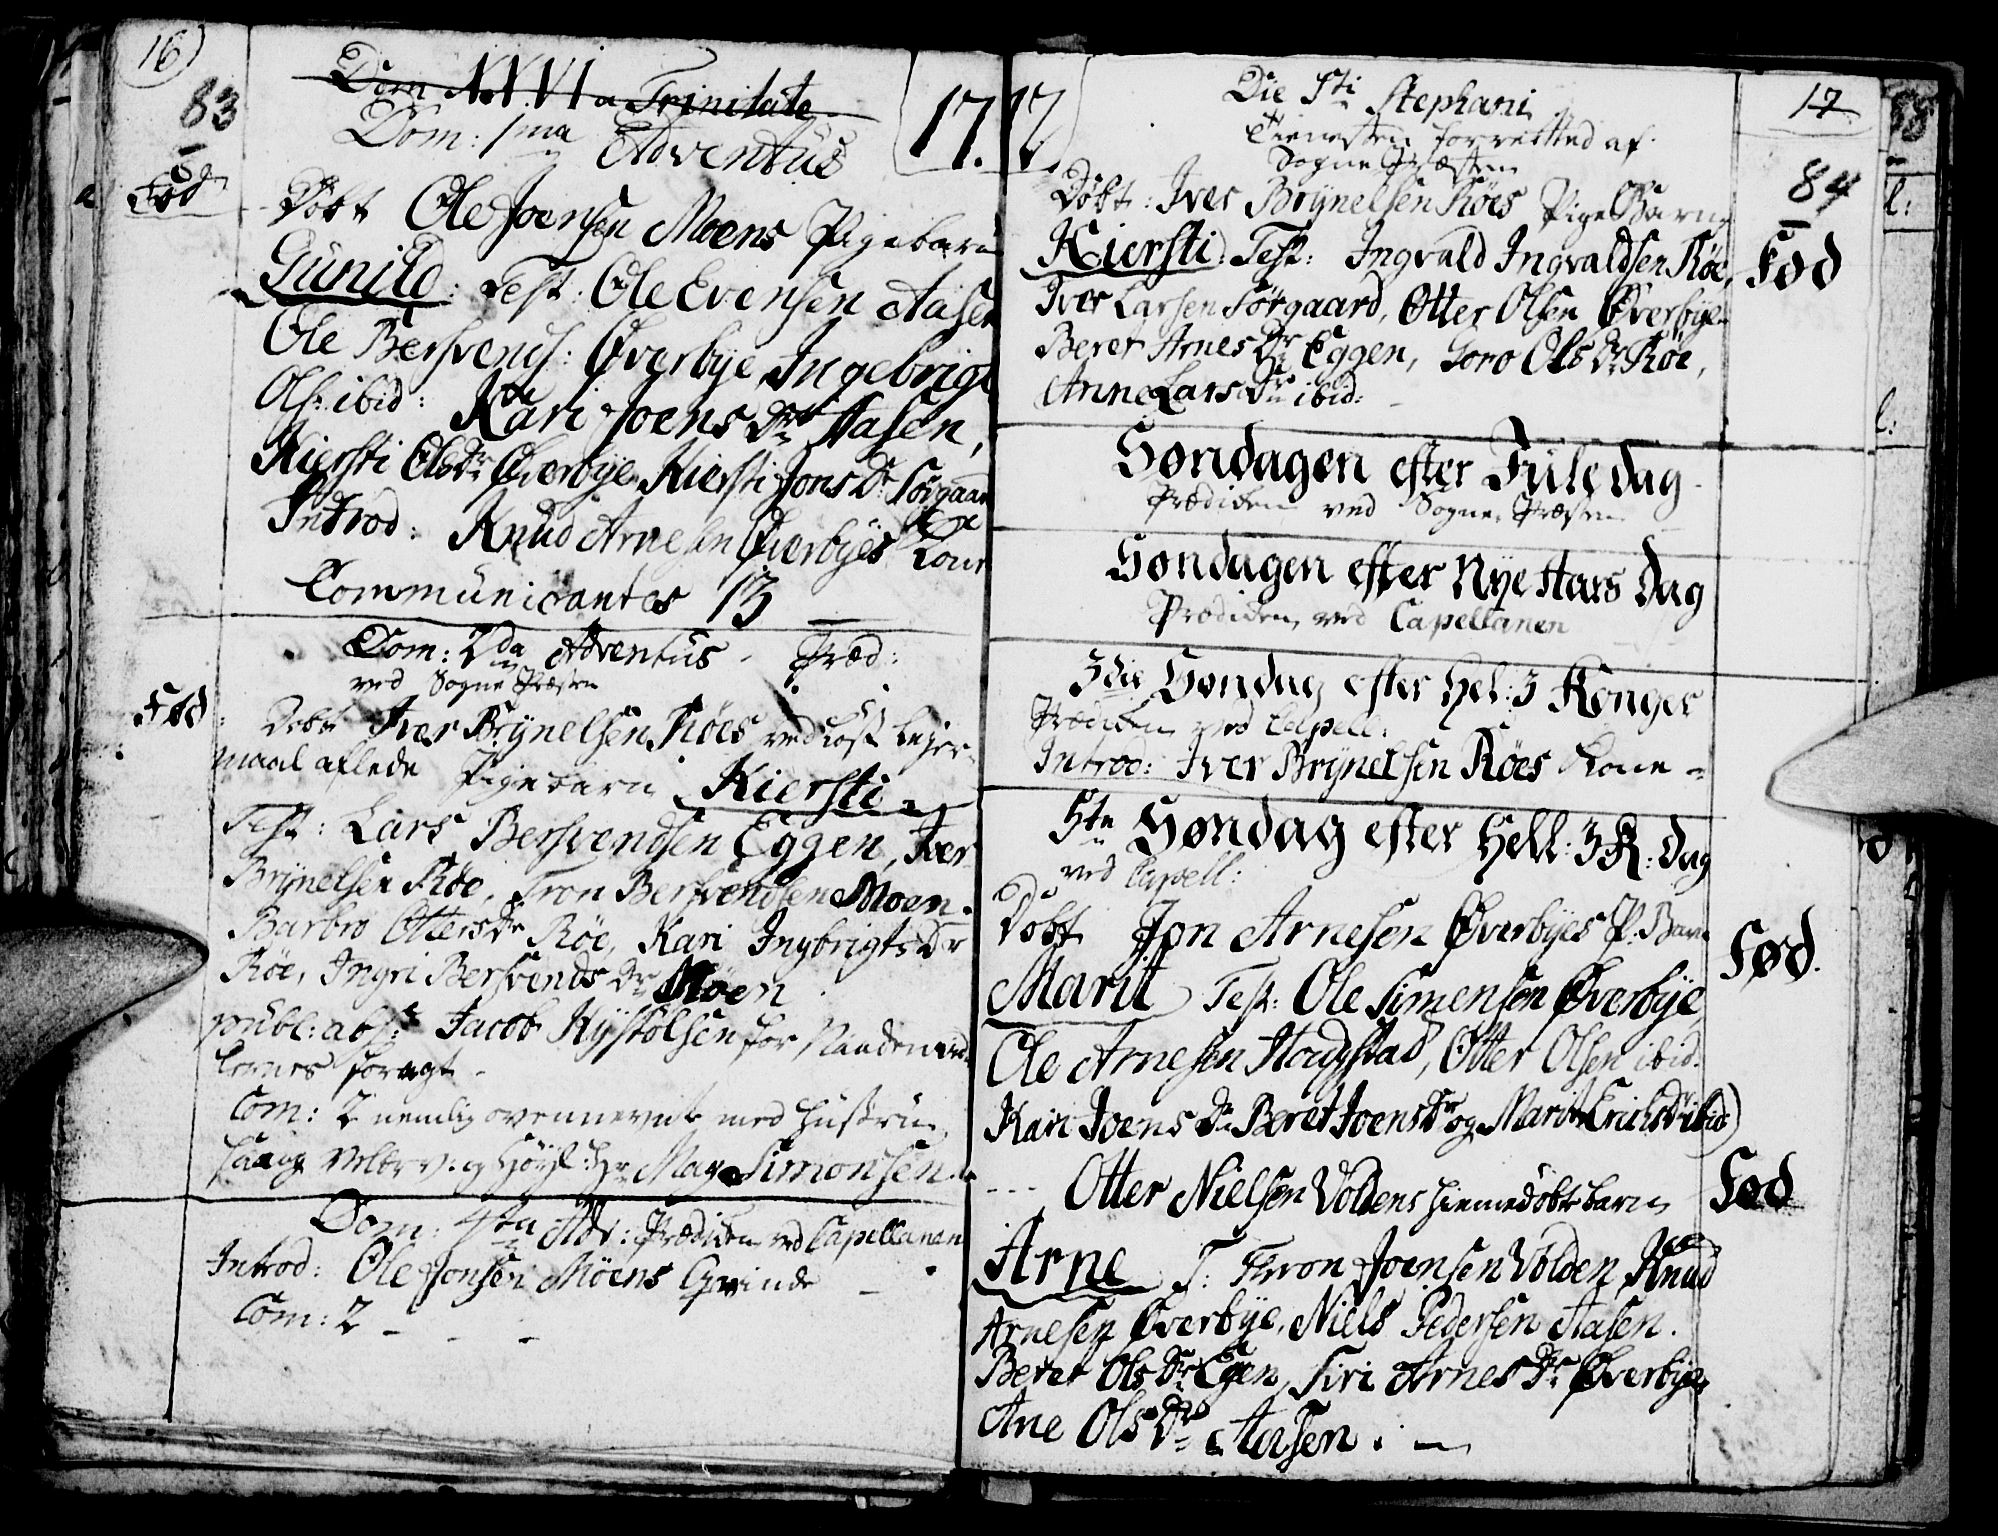 16)
83
Dom XXVI a Trinitate
Dom: 1ma Adventus
17.17
Fød
Døbt Ole Joensen Moens Pigebarn
Gunild: Test: Ole Evensen Aasen
Ole Bersvends: Øverbye, Ingebrigt
Ols: ibid: Kari Joens Dr Aasen,
Kiersti Ols Dr Øverbye, Kiersti Jons Dr Sørgaard
Introd: Knud Arnesen Øverbyes Kone
Communicantes 13
Dom: 2da Adventus. Præd:
ved Sogne Præsten
Fød:
Døbt Iver Brynelsen Röes ved løst Lejer-
maal aflede Pigebarn Kiersti
Test: Lars Bersvendsen Eggen, Iver
Brynelsen Röe, Tron Bersvendsen Moen.
Barbro Otters Dr Röe, Kari Ingbrigts Dr
Röe, Ingri Bersvends Dr Möen.
publ: abs: Jacob Kystolsen for Naademid-
lernes foragt.
Com: 2 nemlig ovennævnte med Hustrue
Mag Simonsen.
Dom: 4ta Adv: Prædiken ved Capellanen
Introd: Ole Jonsen Möens Qvinde
Com: 2 - - -
17
84
Die Sti Stephani
Tienesten forretted af
Sogne Præsten
Døbt: Iver Brynelsen Röes Pige Barn
Kiersti. Test: Ingvald Ingvaldsen Röe,
Fød
Iver Larsen Sørgaard, Otter Olsen Øverbye
Beret Arnes Dr Eggen, Goro Ols Dr Röe,
Anne Lars Dr ibid:
Søndagen efter Juledag
Prædiken ved Sogne Præsten
Søndagen efter Nye Aars Dag
Prædiken ved Capellanen
3die Søndag efter Hel: 3 Konger
Prædiken ved Capell:
Introd: Iver Brynelsen Röes Kone -
5te Søndag efter Hell: 3 K: Dag
ved Capell:
Døbt Jon Arnesen Øverbyes P. Barn
Fød.
Marit Test: Ole Simensen Øverbye,
Ole Arnesen Haugstad, Otter Olsen ibid.
Kari Joens Dr Beret Joens Dr og Marit Erichs Dr ibid)
--- Otter Nielsen Voldens hiemedøbte barn
Fød
Arne T: Thron Joensen Volden, Knud
Arnesen Øverbye, Niels Pedersen Aasen.
Beret Ols Dr Egen, Siri Arnes Dr Øverbye,
Ane Ols Dr Aasen. -